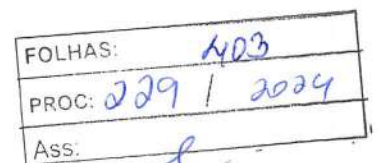 FOLHAS: 403
PROC: 229 / 2024
Ass: